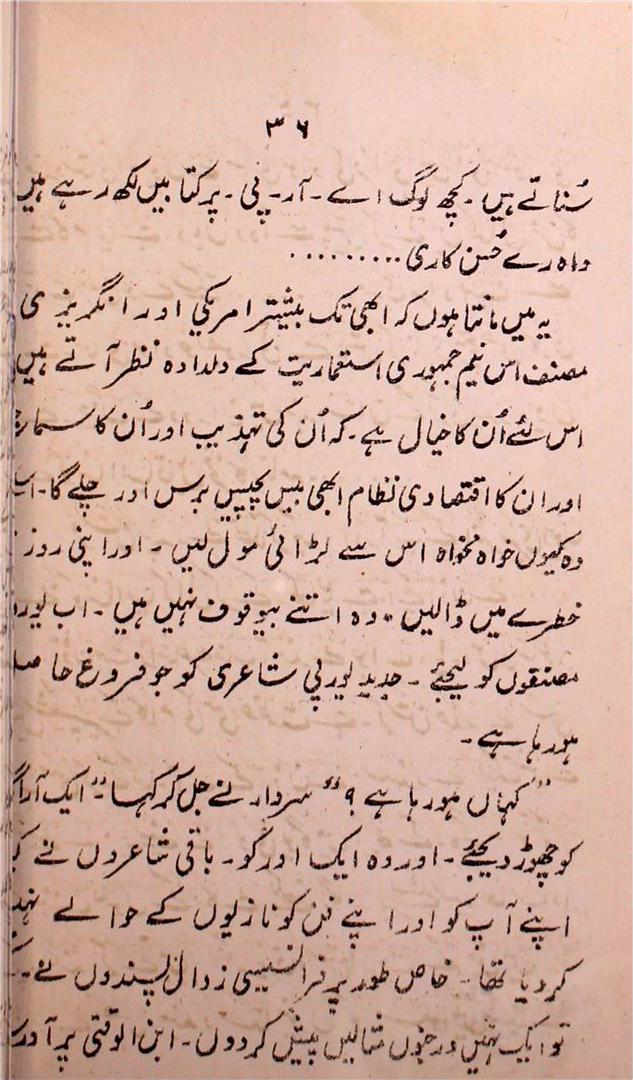 ۳۶
سُناتے ہیں ۔ کچھ لوگ اے ۔ آر ۔ پی ۔ پر کتابیں لکھ رہے ہیں
واہ رے حُسن کاری . . . . . . . . .
یہ میں مانتا ہوں کہ ابھی تک بیشتر امریکی اور انگریزی
مصنف اس نیم جمہوری استعماریت کے دلدادہ نظر آتے ہیں
اس لئے اُن کا خیال ہے ۔ کہ اُن کی تہذیب اور اُن کا
اور ان کا اقتصادی نظام ابھی بیس پچیس برس اور چلے گا ۔
وہ کیوں خواہ مخواہ اس سے لڑائی مول لیں ۔ اور اپنی روز
خطرے میں ڈالیں ۔ وہ اتنے بیوقوف نہیں ہیں ۔ اب
مصنفوں کو لیجئے ۔ جدید یورپی شاعری کو جو فروغ
ہو رہا ہے ۔
"کہاں ہو رہا ہے ؟" سردار نے جل کر کہا ۔ " ایک
کو چھوڑ دیجئے ۔ اور وہ ایک اور کو ۔ باقی شاعروں نے
اپنے آپ کو اور اپنے فن کو نازیوں کے حوالے
کر دیا تھا ۔ خاص طور پر فرانسیسی زوال پسندوں نے ۔
تو ایک نہیں درجنوں مثالیں پیش کر دوں ۔ ابن الوقتی پر